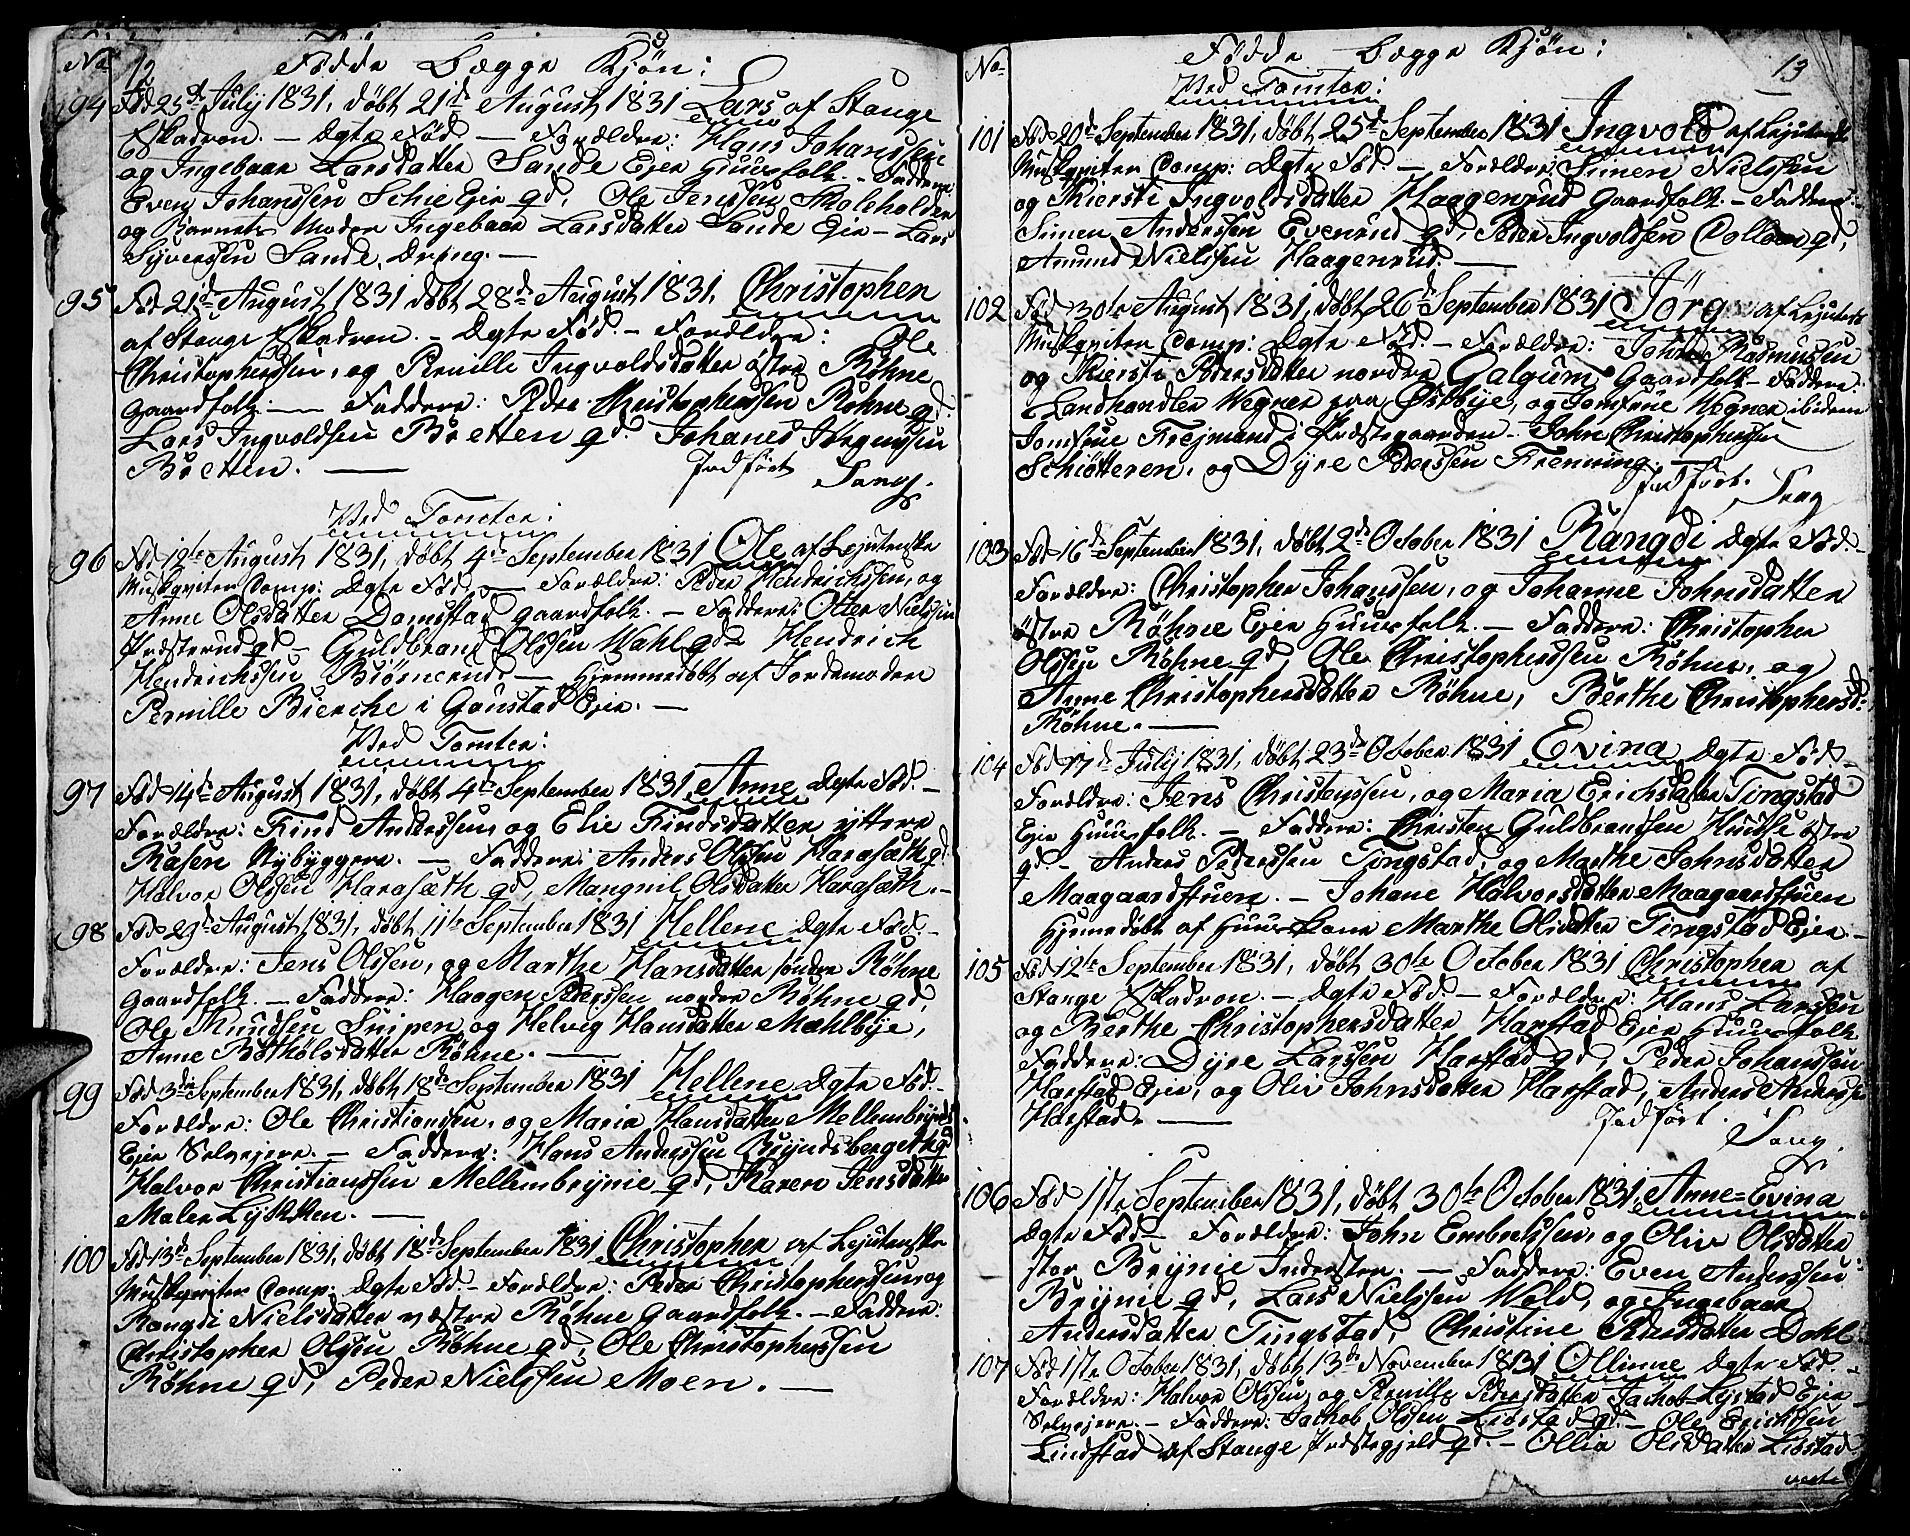 No 12 Fødde Begge Kjøn:
94 Fød 25de July 1831, døbt 21de August 1831 Lars af Stange
Eskadron. — Ægte Fød — Forældre: Hans Johanssen
og Ingebaar Larsdatter Sande Ejer Huusfolk. — Faddere
Even Johanssen Schie Ejer gd, Ole Jenssen Skoleholder
og Barnets Moder Ingebaar Larsdatter Sande Ejer — Lars
Syverssen Sande, Dreng. —
95 Fød 21de August 1831 døbt 28de August 1831, Christopher
af Stange Eskadron. — Ægte Fød. — Forældre: Ole
Christopherssen, og Pernille Ingvoldsdatter østre Røhne
Gaardfolk. — Faddere: Peder Christopherssen Røhne gd:
Lars Ingvoldsen Bretten gd. Johanes Jørgenssen
Bretten. — Indført
Ved Tomter:
96 Fød 19te August 1831, døbt 4de September 1831 Ole af Lejutenske
Muskeviter Comp: Ægte Fød, — Forældre: Peder Hendrichssen, og
Anne Olsdatter Domstad gaardfolk. — Faddere: Otter Nielssen
Præsterud gd — Guldbrand Olssen Wahl gd — Hendrich
Hendrichssen Biørnerud. — Hjemmedøbt af Jordemoder
Pernille Bierche i Gaustad Ejer. —
Ved Tomter:
97 Fød 14de August 1831, døbt 4de September 1831 Anne Ægte Fød. —
Forældre: Find Anderssen og Elie Findsdatter yttere
Rasen Nybyggere. — Faddere: Anders Olssen Harasæth gd
Halvor Olssen Harasæth gd, Mangnil Olsdatter Harasæth. —
98 Fød 29de August 1831, døbt 11te September 1831 Hellene Ægte Fød. —
Forældre: Jens Olssen, og Marthe Hansdatter søndre Røhne
Gaardfolk. — Faddere: Haagen Pederssen nordre Røhne gd,
Ole Knudsen Snipen og Helvig Hansdatter Mæhlbye,
Anne Bothølsdatter Røhne. —
99 Fød 3die September 1831, døbt 18de September 1831 Hellene Ægte Fød. —
Forældre: Ole Christianssen, og Maria Hansdatter Mellembrynds
Ejer Selvejere. — Faddere: Hans Anderssen Bryndsberget gd
Halvor Christianssen Mellembrynie gd, Karen Jensdatter
Maler Lykken. —
100 Fød 13de September 1831, døbt 18de September 1831 Christopher af Lejutenske
Muskeviter Comp: Ægte Fød. — Forældre: Peder Christopherssen og
Rangdi Nielsdatter væstre Røhne Gaardfolk. — Faddere:
Christopher Olssen Røhne gd, Ole Christopherssen
Røhne gd, Peder Nielssen Moen. —
No Fødde Begge Kjøn: 13
Ved Tomter:
101 Fød 20de September 1831, døbt 25de September 1831 Ingvold af Lejutenske
Muskeviter Comp: Ægte Fød. — Forældre: Simen Nielssen
og Kiersti Ingvoldsdatter Haagenrud Gaardfolk. — Faddere:
Simen Anderssen Evenrud gd, Peder Ingvoldsen Colloen gd,
Amund Nielssen Haagenrud. —
102 Fød 30te August 1831, døbt 26de September 1831 Jörg af Lejutenske
Muskeviter Comp: Ægte Fød. — Forældre: Johan Rasmussen
og Kiersti Pedersdatter nordre Galgum Gaardfolk — Faddere:
Landhandler Wegner paa Østbye, og Jomfrue Wegner ibidem
Jomfrue Frejmand i Præstegaarden — John Christopherssen
Schiötteren, og Dyre Pederssen Frenning —
Indført.
103 Fød 16de September 1831, døbt 2de October 1831 Rangdi Ægte Fød. —
Forældre: Christopher Johanssen, og Johanne Johnsdatter
østre Røhne Ejer Huusfolk. — Faddere: Christopher
Olssen Røhne gd, Ole Christopherssen Röhne, og
Anne Christophersdatter Röhne, Berthe Christophersd:
Röhne. —
104 Fød 17de July 1831, døbt 23de October 1831 Evina Ægte Fød. —
Forældre: Jens Christenssen, og Maria Erichsdatter Tingstad
Ejer Huusfolk. — Faddere: Christen Guldbrandssen Hundse østre
gd. — Anders Pederssen Tingstad, og Marthe Johnsdatter
Maagaardstuen. — Johane Halvorsdatter Maagaardstuen
Hjemedøbt af Huus Kone Marthe Olsdatter Tingstad Ejer. —
105 Fød 12te September 1831, døbt 30te October 1831 Christopher af
Stange Eskadron. — Ægte Fød. — Forældre: Hans Larssen
og Berthe Christophersdatter Harstad Ejer Huusfolk
Faddere: Dyre Larssen Harstad gd, Peder Johanssen
Harstad Ejer, og Oliv Johnsdatter Harstad, Anders Anderssen
Harstad. — Indført.
106 Fød 17de September 1831, døbt 30te October 1831, Anne=Evina
Ægte Fød — Forældre: John Embretssen, og Oliv Olsdatter
stor Brynie Inderster. — Faddere: Even Anderssen
Brynie gd, Lars Nielssen Wold, og Ingebaar
Andersdatter Tingstad, Christine Knudsdatter Dahl
107 Fød 17de October 1831, døbt 13de November 1831 Ollinne Ægte Fød. —
Forældre: Halvor Olssen, og Pernille Pedersdatter Jachob Lystad Ejer
Selvejere. — Faddere: Jachob Olssen Lidstad gd. — Ole Erichssen
Lindstad af Stange Præstegjeld gd. — Ollia Olsdatter Lidstad